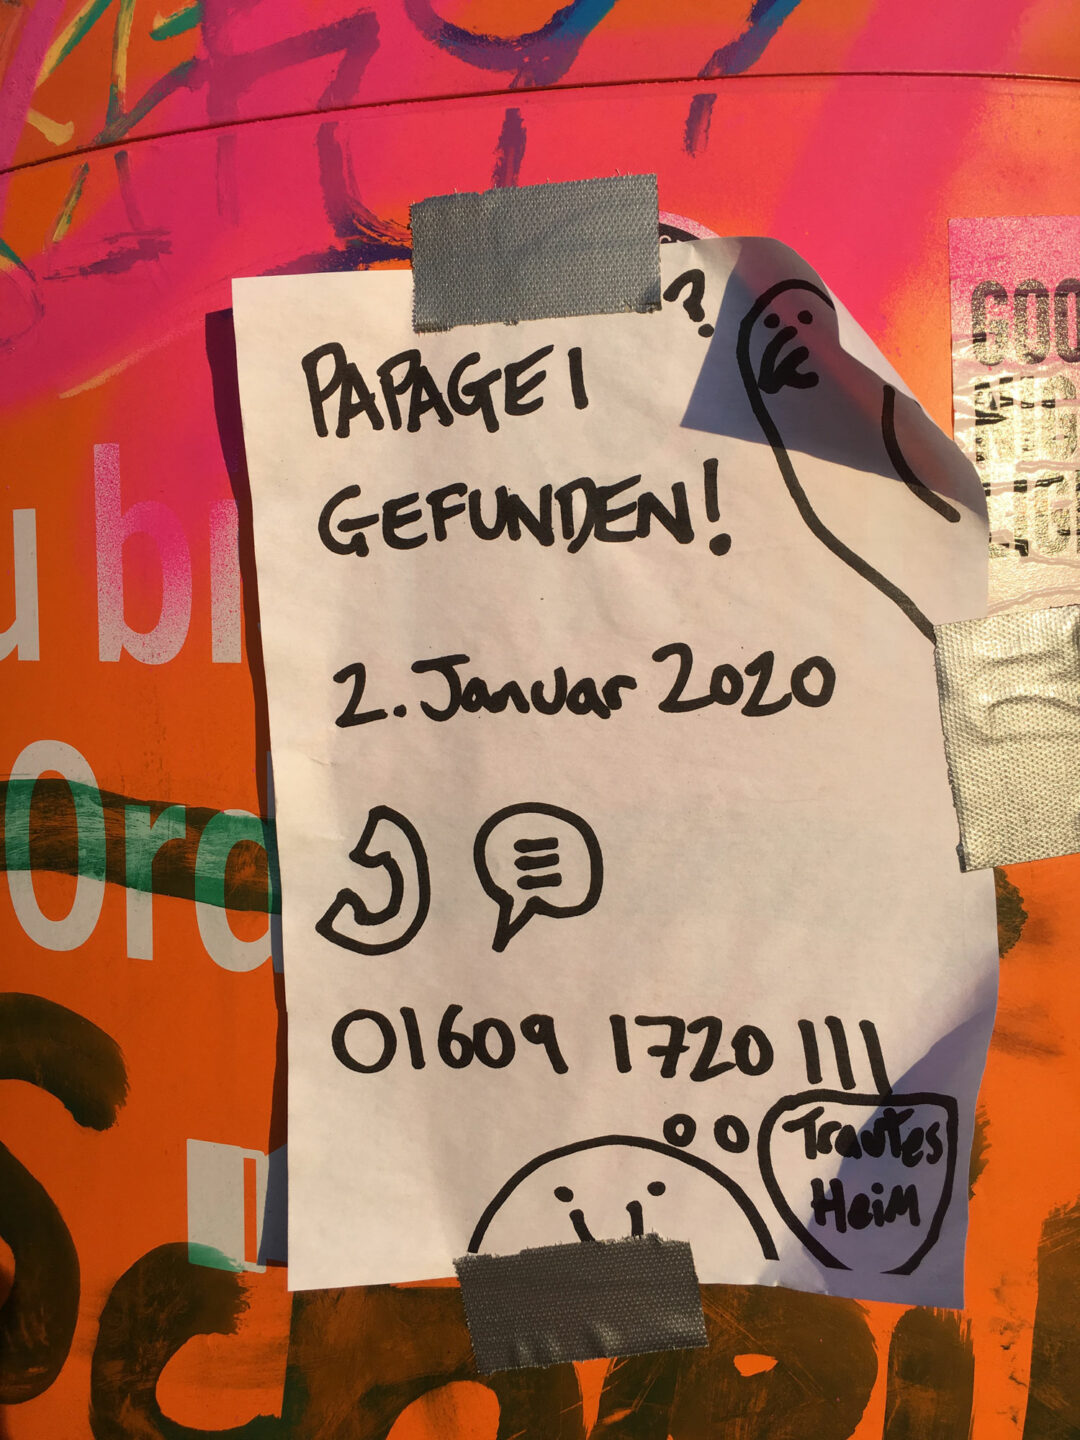 ?
PAPAGEI
GEFUNDEN!
2. Januar 2020
01609 1720 111
Trautes
Heim
u br
Ord
GOO